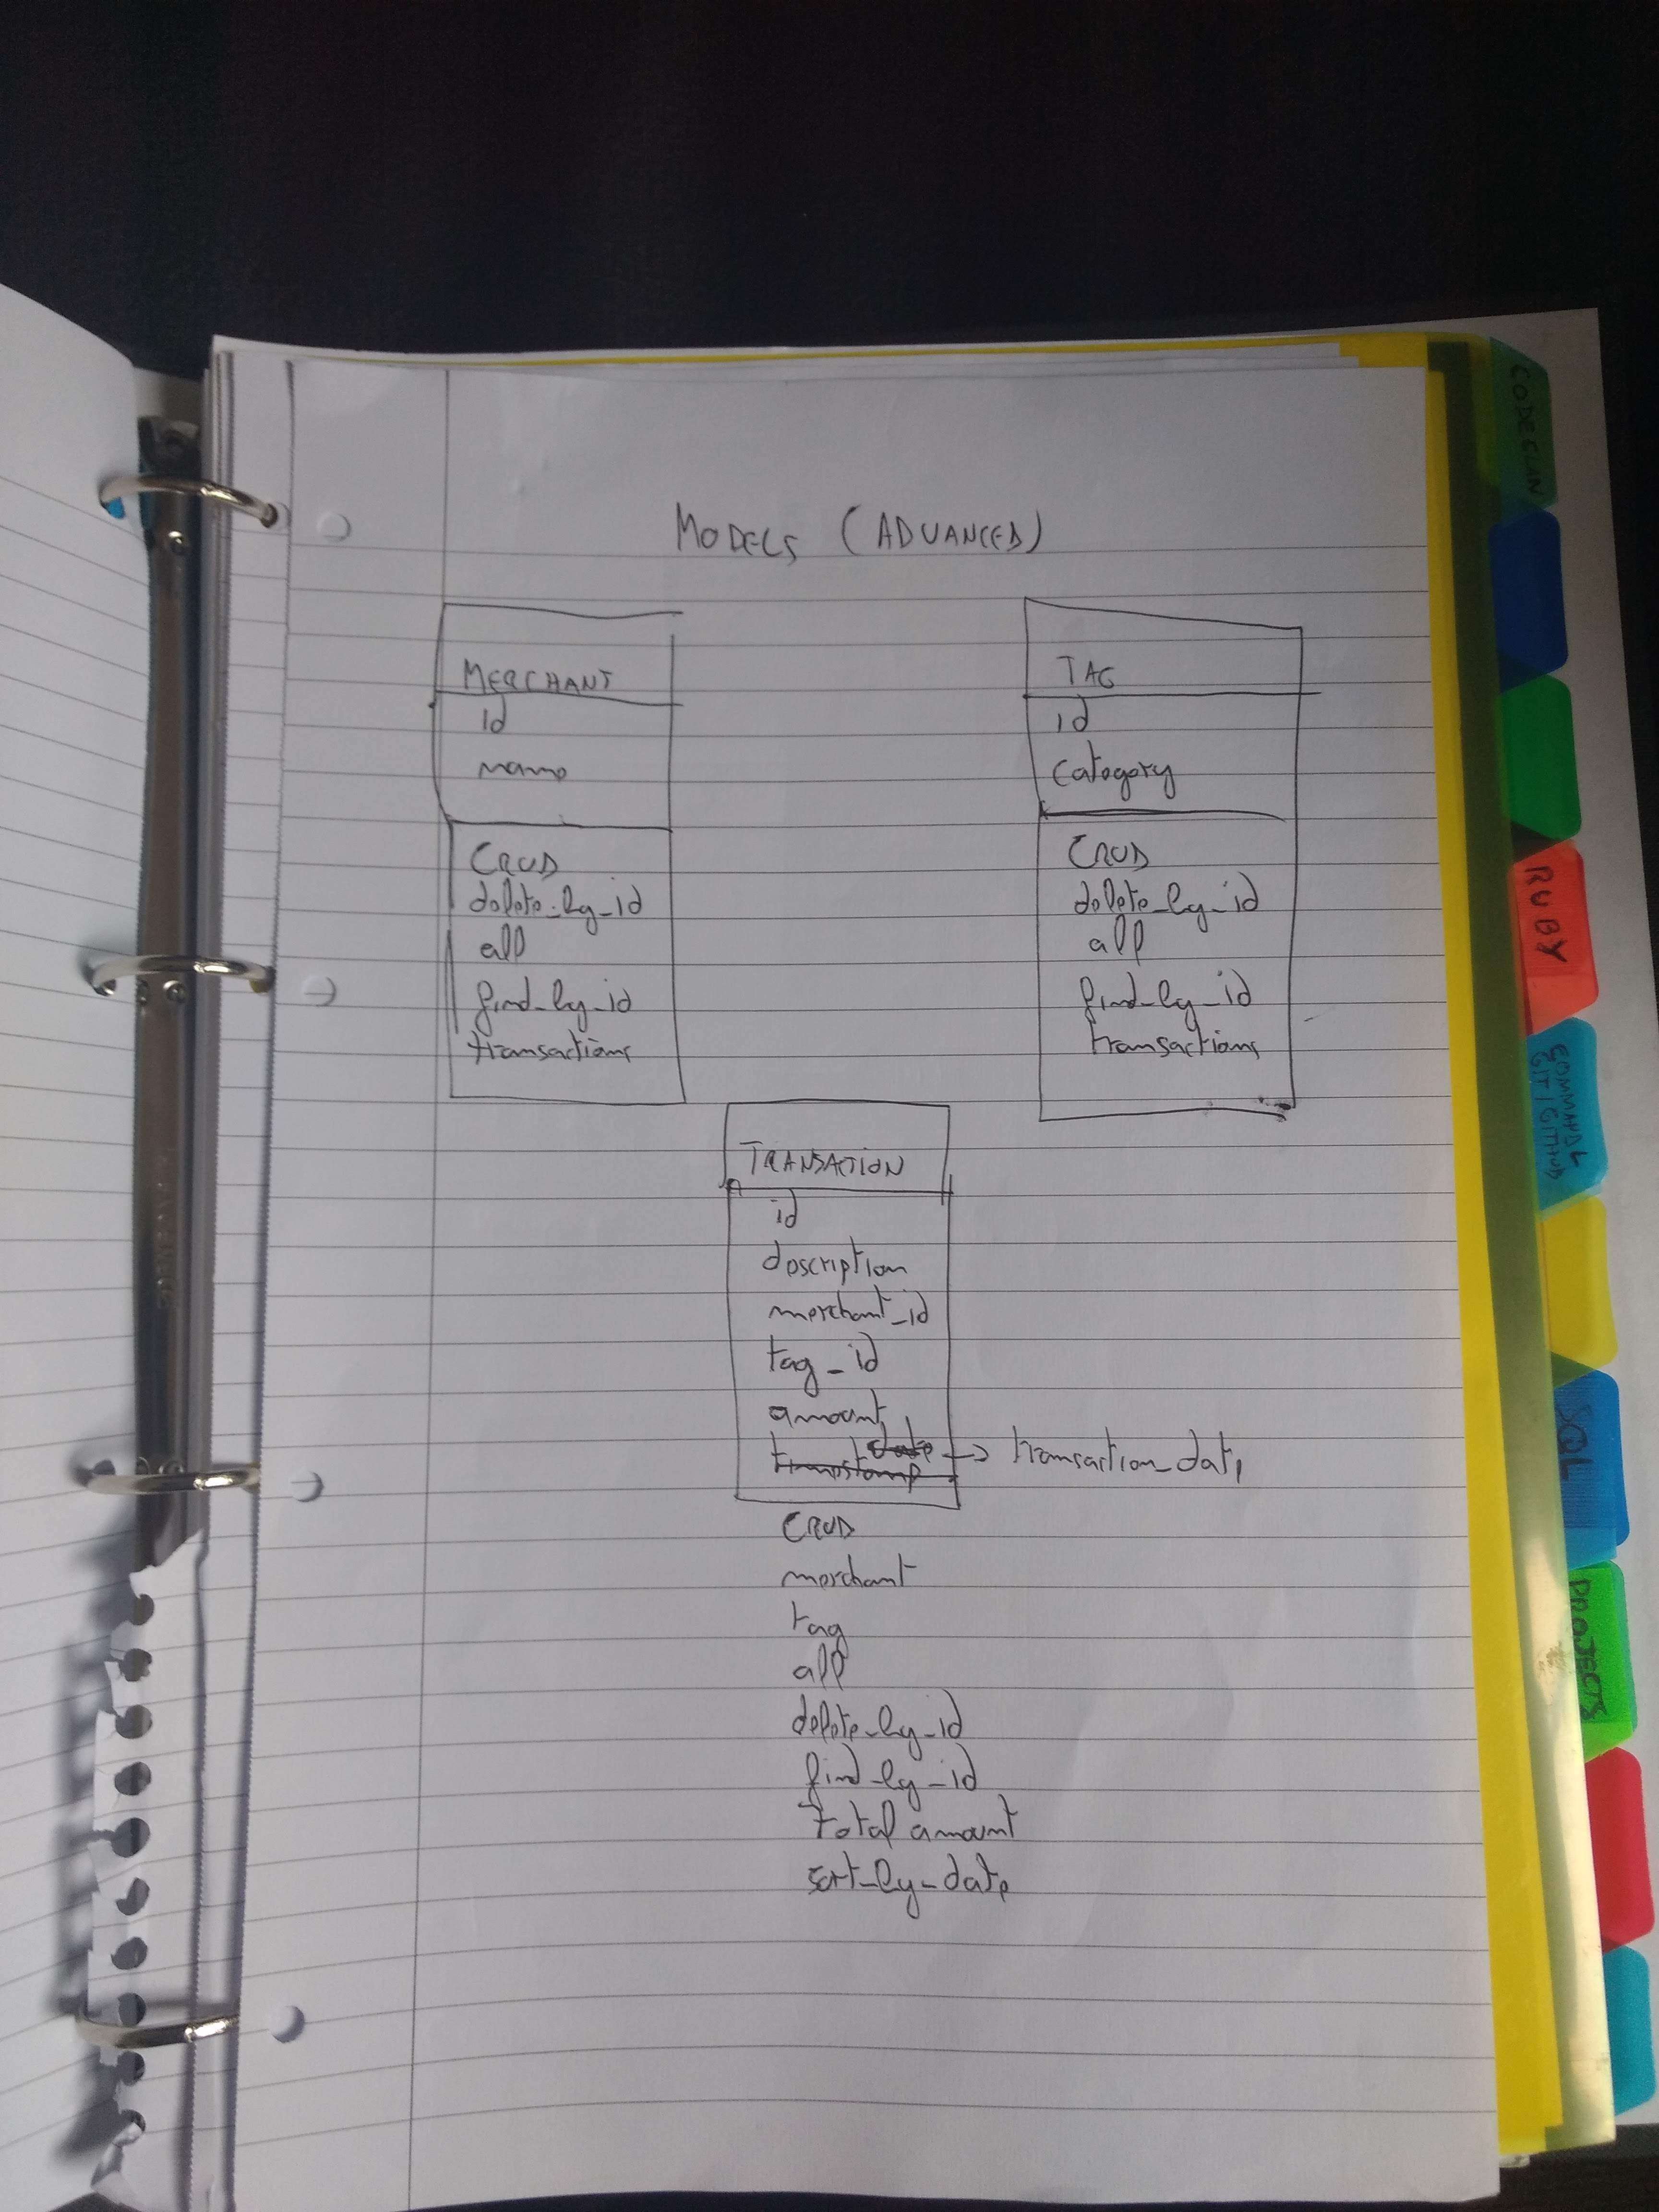 MODELS (ADVANCED)
MERCHANT
id
name
CRUD
delete_by_id
all
find_by_id
transactions
TAG
id
category
CRUD
delete_by_id
all
find_by_id
transactions
TRANSACTION
id
description
merchant_id
tag_id
amount
date
timestamp → transaction_date
CRUD
merchant
tag
all
delete_by_id
find_by_id
total amount
sort_by_date
CODECLAN
RUBY
COMMAND L
GIT / GITHUB
SQL
PROJECTS